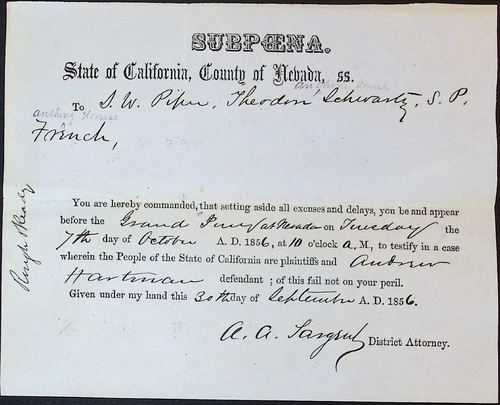 SUBPŒNA.
State of California, County of Nevada, ss.
To S. W. Piper, Theodore Schwartz, S. P.
French,
You are hereby commanded, that setting aside all excuses and delays, you be and appear
before the Grand Jury at Nevada on Tuesday the
7th day of October A. D. 1856, at 10 o'clock A, M., to testify in a case
wherein the People of the State of California are plaintiffs and Andrew
Hartman defendant ; of this fail not on your peril.
Given under my hand this 30th day of September A. D. 1856.
A. A. Sargent District Attorney.
Rough & Ready